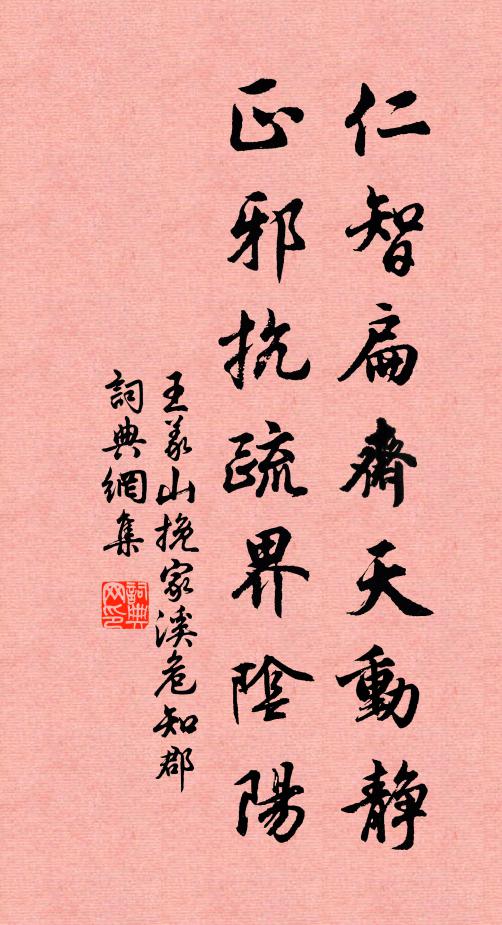 仁智扁齋天動静
正邪抗疏界陰陽
王義山挽家溪危知郡
詞典網集
詞典网印